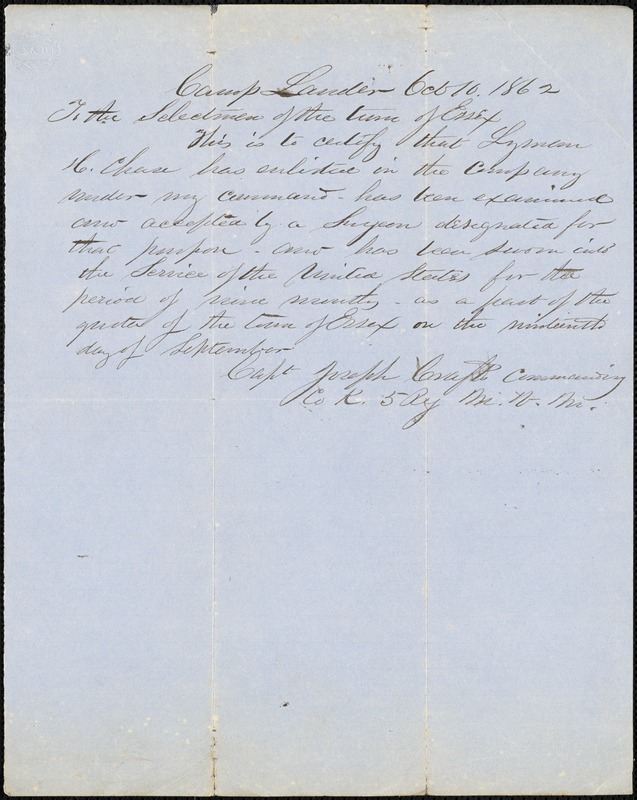 Camp Lander Oct 10. 1862
To the Selectmen of the town of Essex
This is to certify that Lyman
H. Chase has enlisted in the Company
under my command - has been examined
and accepted by a Surgeon designated for
that purpose - and has been sworn into
the Service of the United States for the
period of nine months - as a part of the
quota of the town of Essex on the nineteenth
day of September
Capt Joseph Crafts Commanding
Co K. 5 Reg